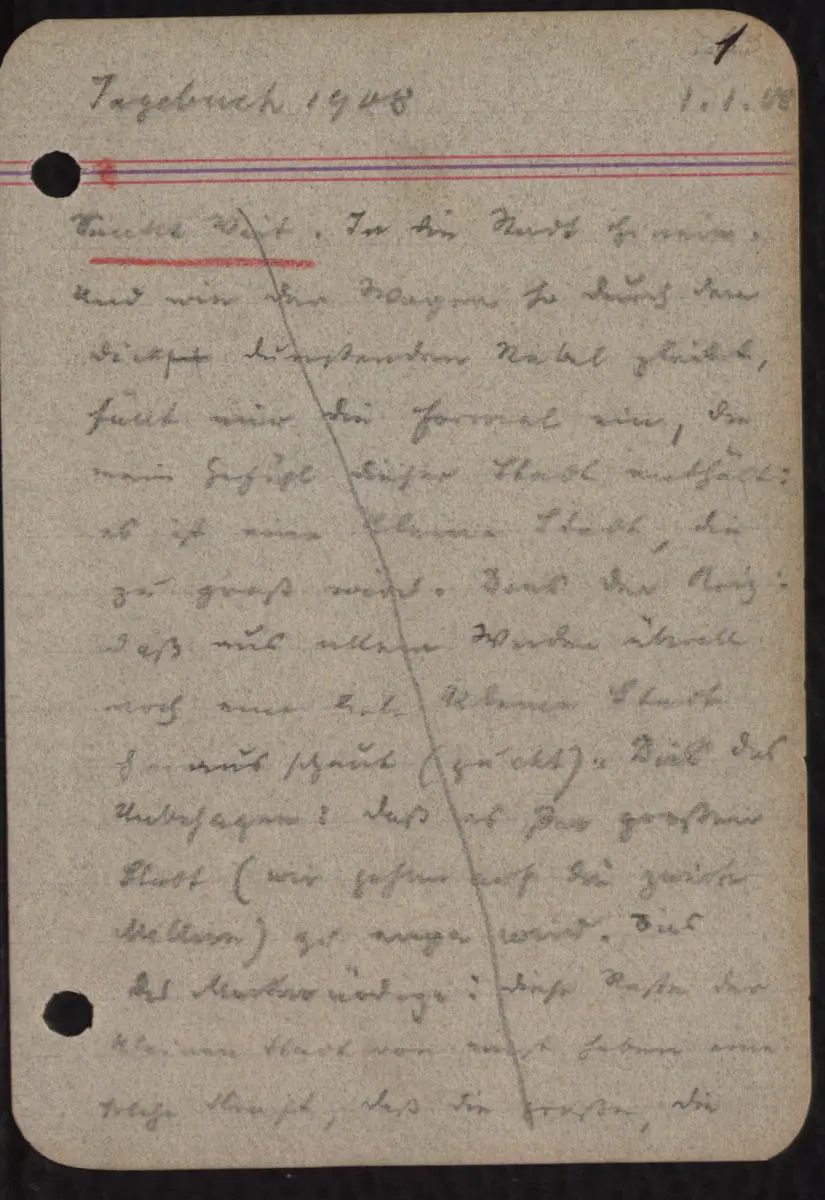 1
Tagebuch 1908 1.1.08
Sankt Veit. In die Stadt hinein.
Und wie der Wagen so durch den
dick dunstenden Nebel gleitet,
fällt mir die Formel ein, die
mein Gefühl dieser Stadt enthält:
es ist eine kleine Stadt, die
zu groß wird. Dies der Reiz:
daß aus allem Werden überall
noch eine kleine Stadt
heraus schaut (guckt). Dies das
Unbehagen: daß es der großen
Stadt (wir gehen auf die zweite
Million) zu enge wird. Dies
das Merkwürdige: diese Reste der
kleinen Stadt von einst haben eine
solche Kraft, daß die große, die